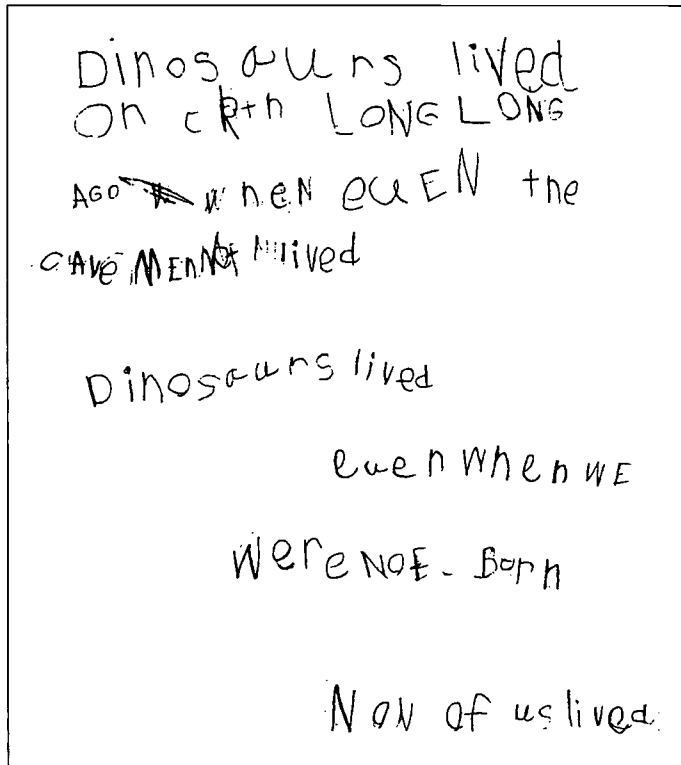 Dinosaurs lived
On eRth LONG LONG
AGO wheN evEN the
CAVe MEn Not lived
Dinosaurs lived
even when WE
Were NOt - Born
NoN of us lived